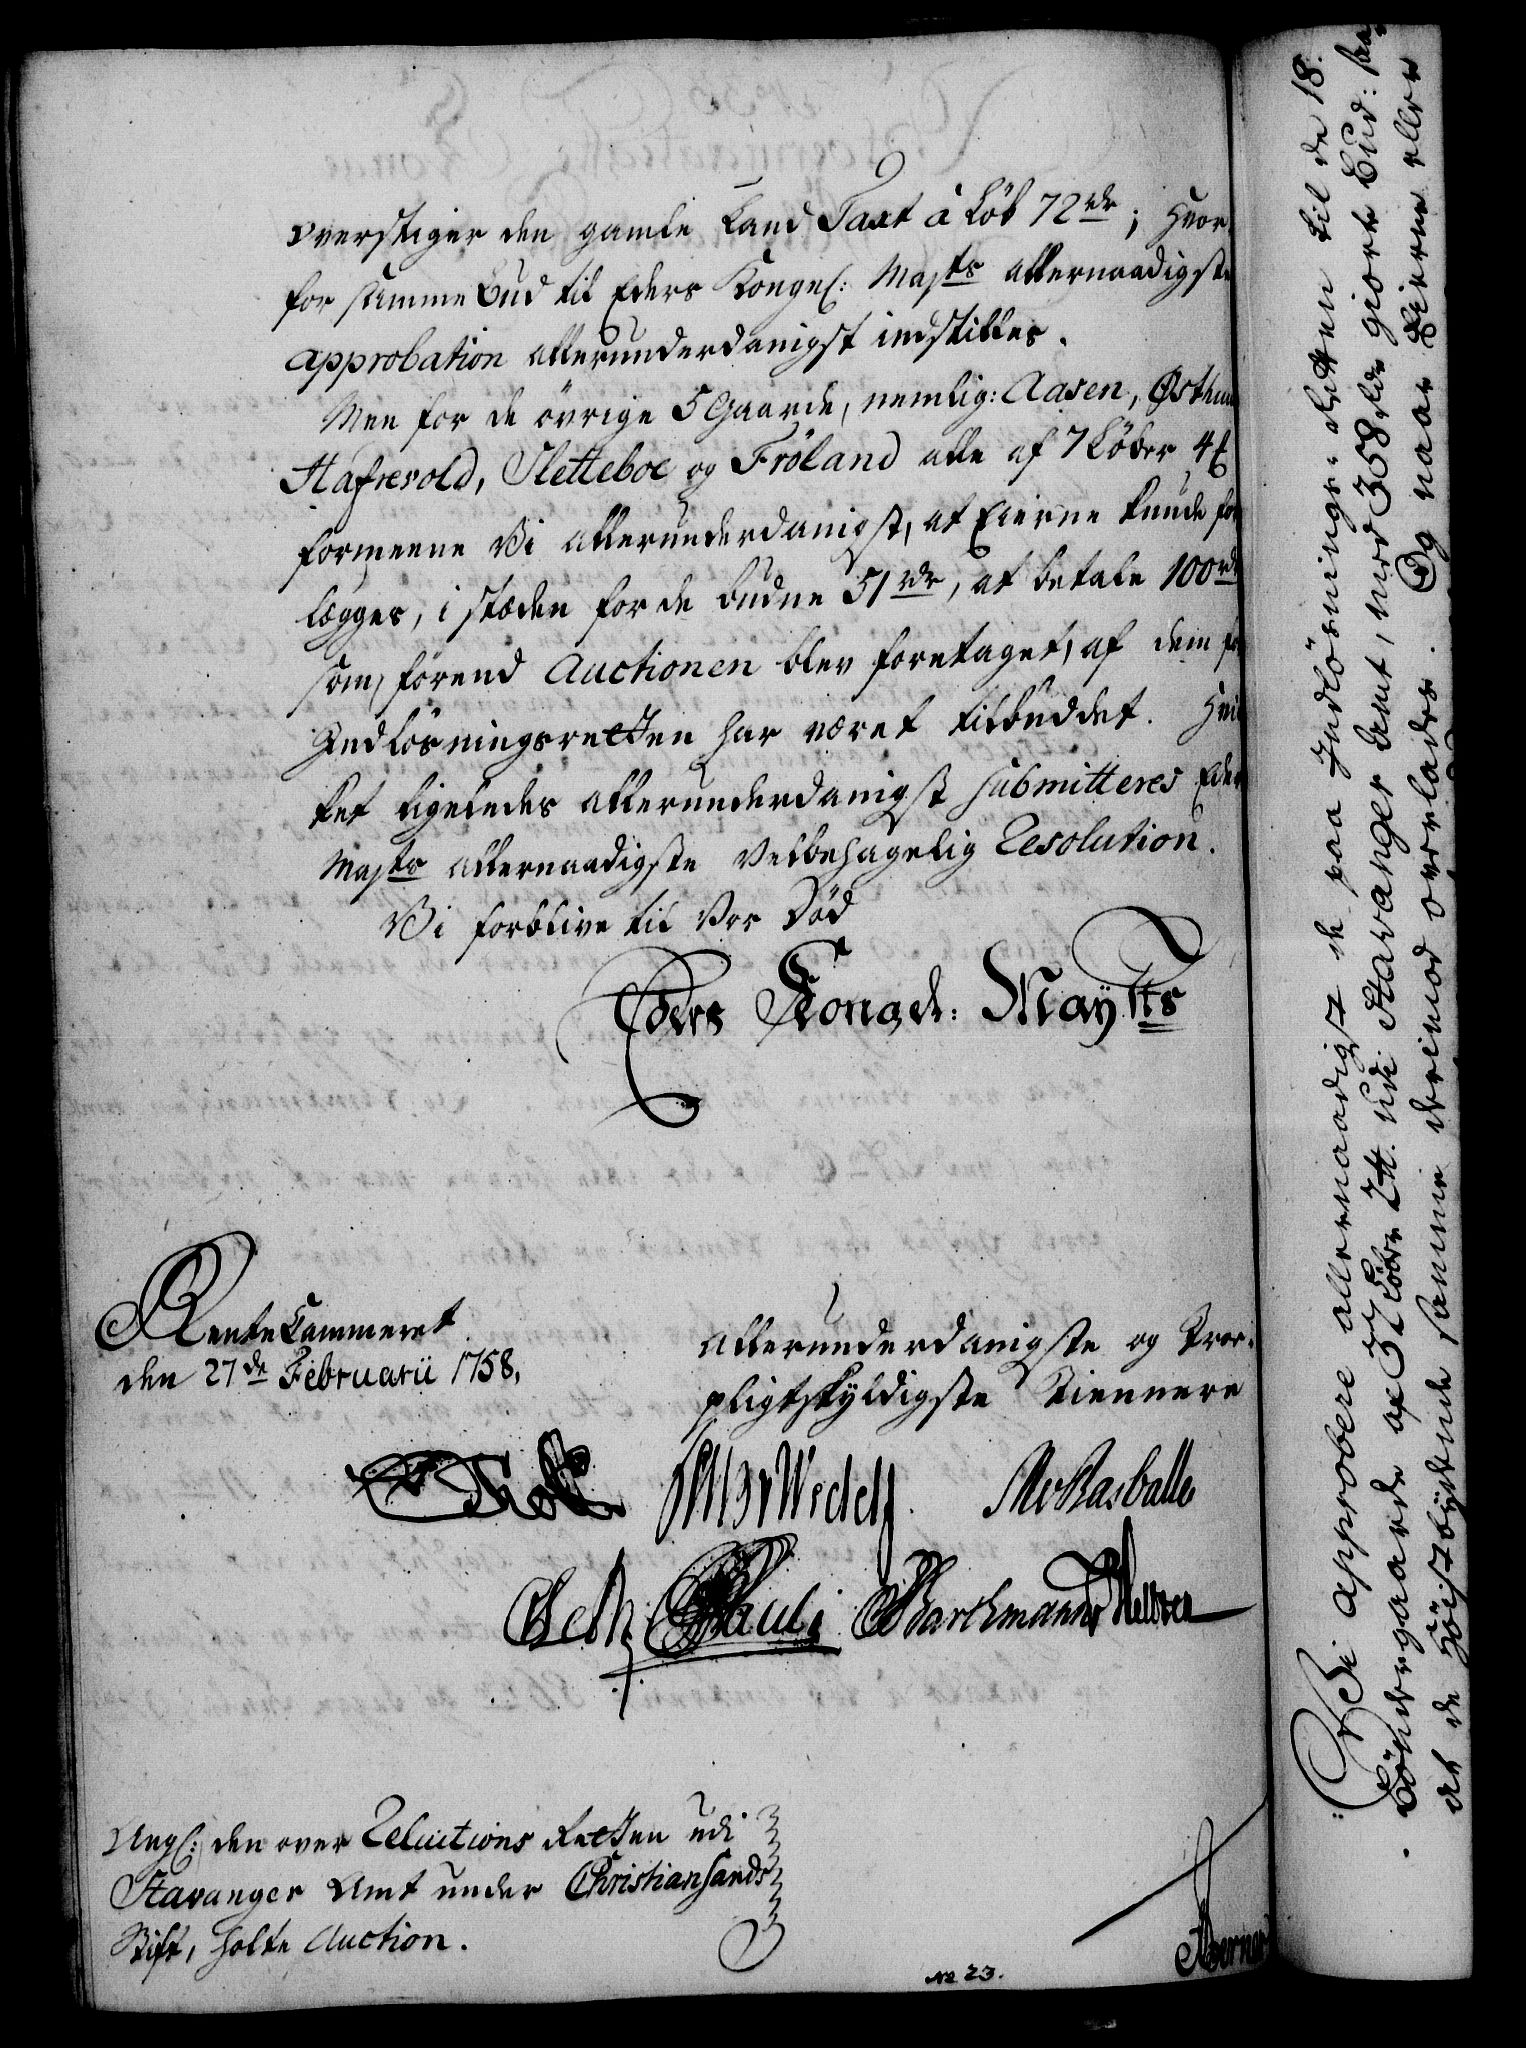 overstiger den gamle Land Taxt à Løb 72 rdr; Hvor-
for samme Bud til Eders Kongel: Mayts allernaadigste
approbation allerunderdanigst indstilles.
Men for de övrige 5 Gaarde, nemlig: Aasen, Østhuu
Hafresold, Sletteboe og Fröland alle af 7 Løber 4 
formeene Vi allerunderdanigst, at Eierne kunde for
lægges, i stæden for de budne 51 rdr, at betale 100 rdr
som, forend Auctionen blev foretaget, af dem for
Indlösningsretten har været tilbuddet. Hvil
ket ligeledes allerunderdanigst submitteres Eders
Mayts allernaadigste Velbehagelig Resolution.
Vi forblive til Vor Död
Eders Kongel: Maytts
RenteCammeret
den 27de Februarii 1758.
allerunderdanigste og Troe-
pligtskyldigste Tiennere
Holt
Wedel
Rasballe
Pauli
Barthmann
Angl: den over Relutions Retten udi
Stavanger Amt under Christiansands
Stift, holte Auction.
No 23.
Vi approbere allernaadigst de paa Indlösnings-Retten til de 18.
Bøndergaarde af 37 Løber 2 . udi Stavanger Amt, med 358 rdr giorte Bud: saa
at de Höistbydende samme derimod overlades. Og naar Eierne eller